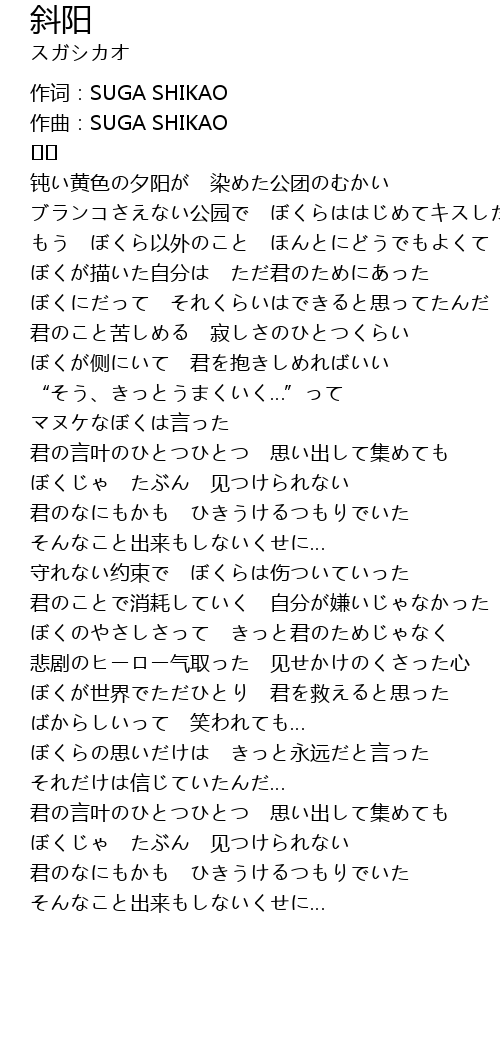 斜阳
スガシカオ
作词：SUGA SHIKAO
作曲：SUGA SHIKAO
钝い黄色の夕阳が　染めた公团のむかい
ブランコさえない公园で　ぼくらははじめてキスした
もう　ぼくら以外のこと　ほんとにどうでもよくて
ぼくが描いた自分は　ただ君のためにあった
ぼくにだって　それくらいはできると思ってたんだ
君のこと苦しめる　寂しさのひとつくらい
ぼくが侧にいて　君を抱きしめればいい
“そう、きっとうまくいく…”って
マヌケなぼくは言った
君の言叶のひとつひとつ　思い出して集めても
ぼくじゃ　たぶん　见つけられない
君のなにもかも　ひきうけるつもりでいた
そんなこと出来もしないくせに…
守れない约束で　ぼくらは伤ついていった
君のことで消耗していく　自分が嫌いじゃなかった
ぼくのやさしさって　きっと君のためじゃなく
悲剧のヒーロー气取った　见せかけのくさった心
ぼくが世界でただひとり　君を救えると思った
ばからしいって　笑われても…
ぼくらの思いだけは　きっと永远だと言った
それだけは信じていたんだ…
君の言叶のひとつひとつ　思い出して集めても
ぼくじゃ　たぶん　见つけられない
君のなにもかも　ひきうけるつもりでいた
そんなこと出来もしないくせに…